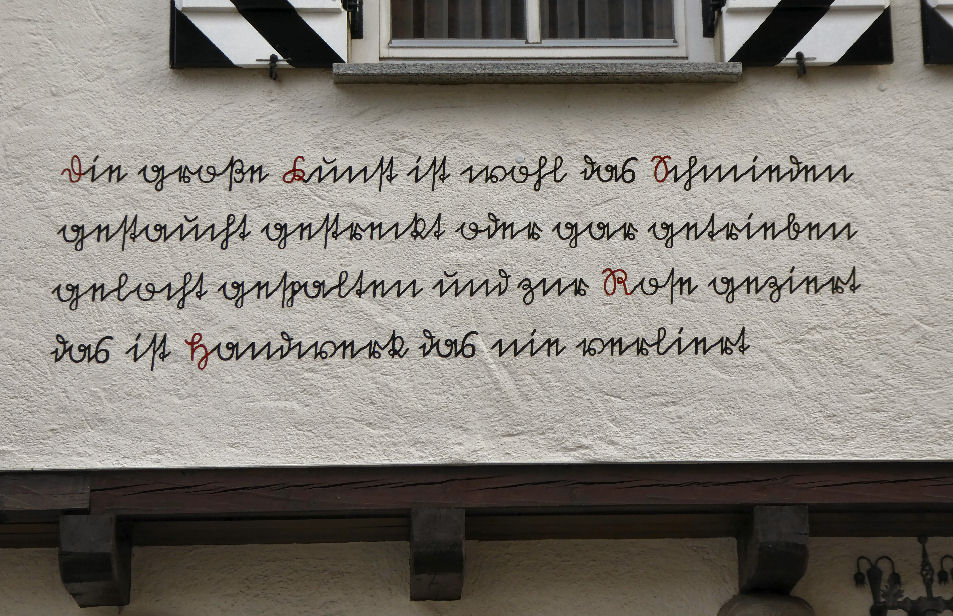 Die große Kunst ist wohl das Schmieden
gestaucht gestreckt oder gar getrieben
gelocht gespalten und zur Rose geziert
das ist Handwerk das nie verliert